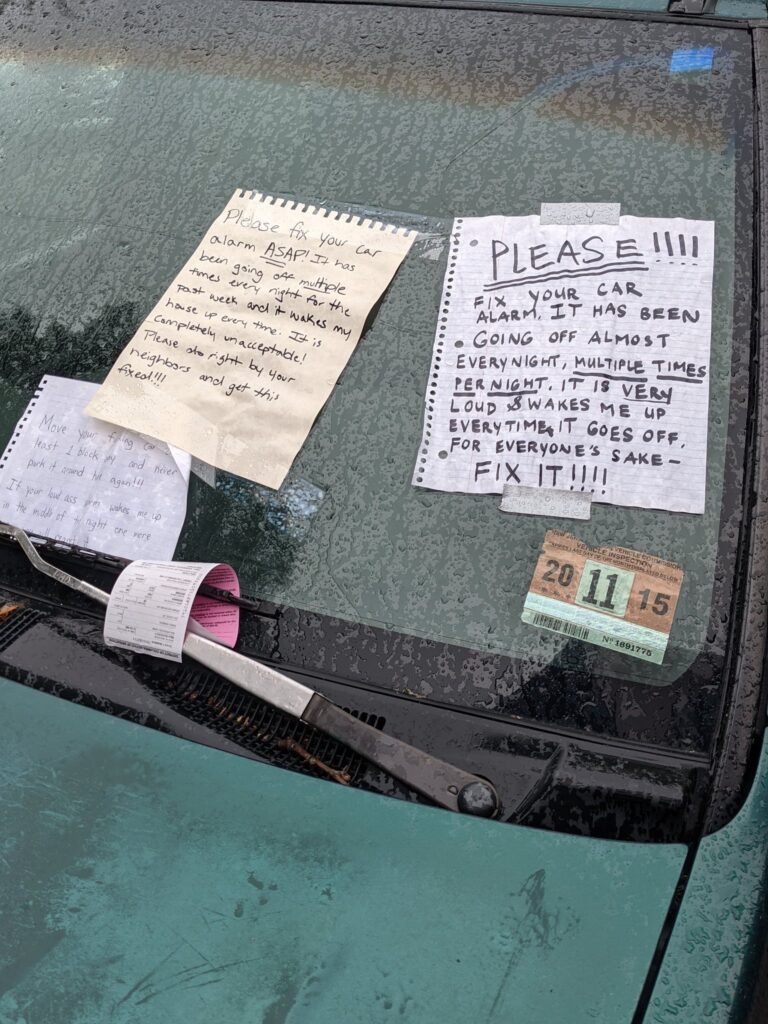 Please fix your car
alarm ASAP! It has
been going off multiple
times every night for the
past week and it wakes my
house up every time. It is
completely unacceptable!
Please do right by your
neighbors and get this
fixed!!!
PLEASE!!!!
FIX YOUR CAR
ALARM. IT HAS BEEN
GOING OFF ALMOST
EVERY NIGHT, MULTIPLE TIMES
PER NIGHT. IT IS VERY
LOUD & WAKES ME UP
EVERYTIME IT GOES OFF.
FOR EVERYONE'S SAKE—
FIX IT!!!!
Move your
least I block and never
park it around again!!!
If your loud ass wakes me up
in the middle of night one more
VEHICLE COMMISSION
VEHICLE INSPECTION
20 11 15
Nº 1691775